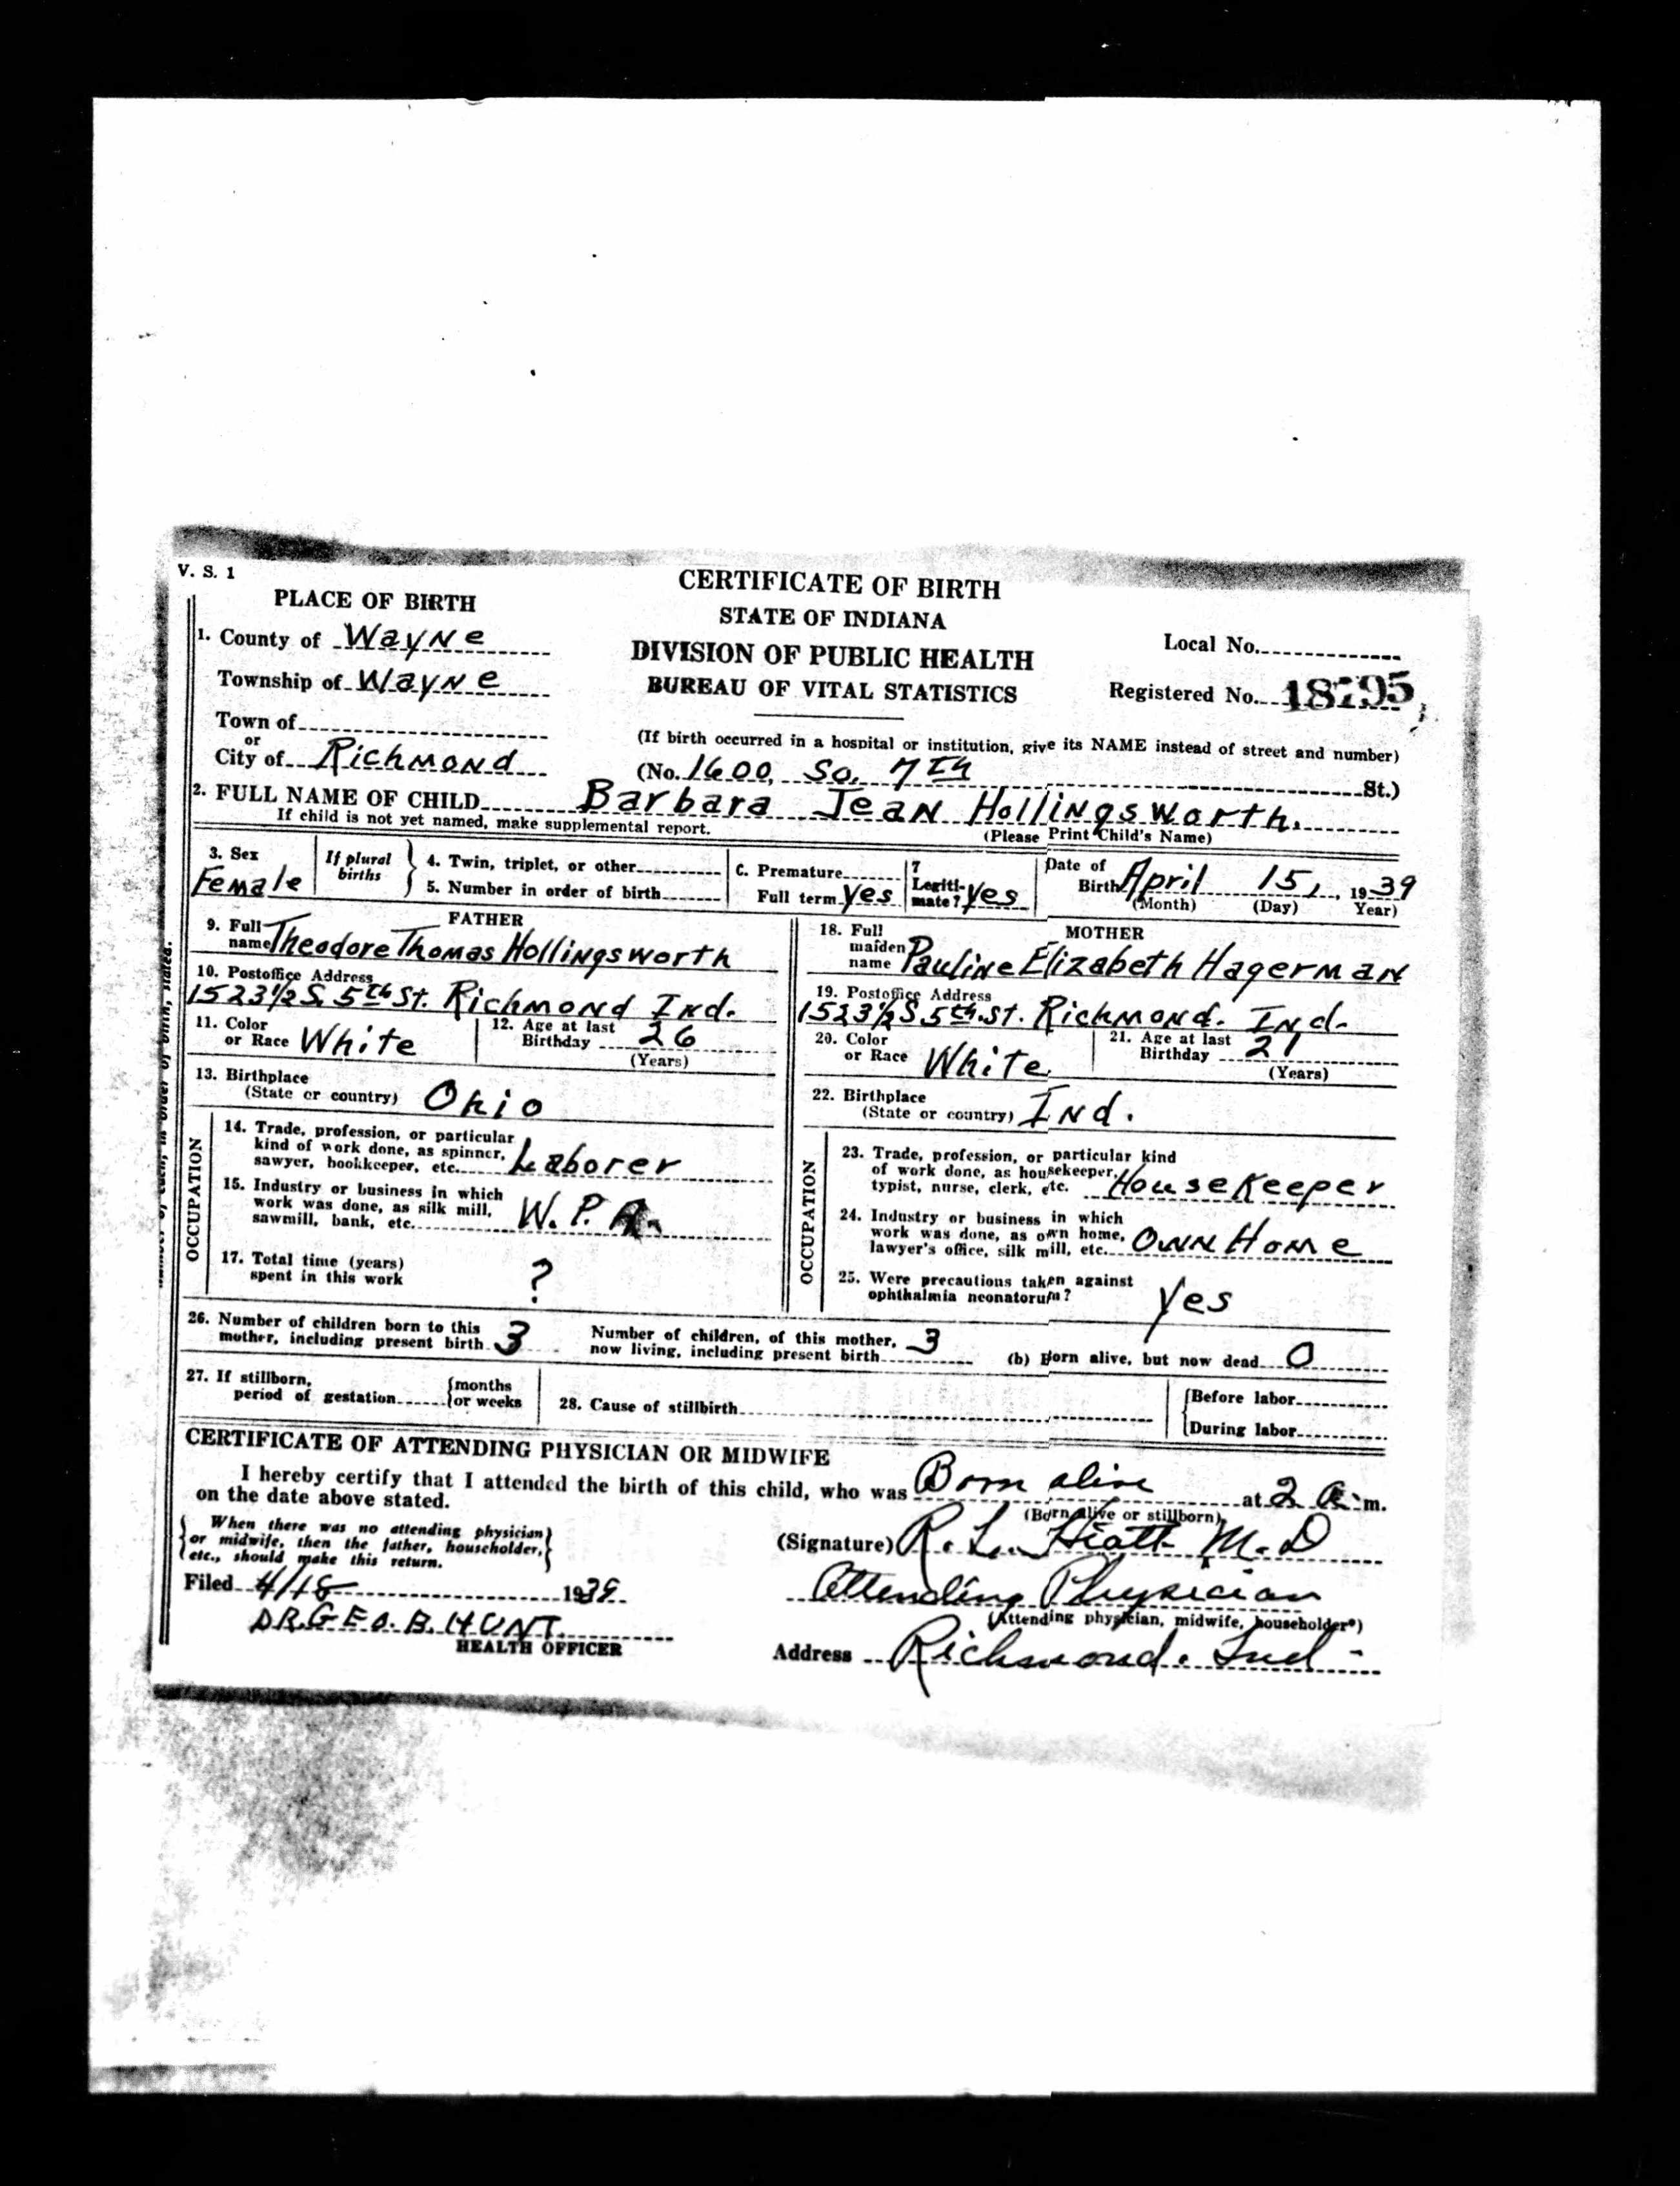 V. S. 1
CERTIFICATE OF BIRTH
STATE OF INDIANA
DIVISION OF PUBLIC HEALTH
BUREAU OF VITAL STATISTICS
PLACE OF BIRTH
1. County of Wayne
Township of Wayne
Town of
or
City of Richmond
Local No.
Registered No. 18795
(If birth occurred in a hospital or institution, give its NAME instead of street and number)
(No. 1600, So. 7th St.)
2. FULL NAME OF CHILD Barbara Jean Hollingsworth.
If child is not yet named, make supplemental report. (Please Print Child's Name)
3. Sex Female
If plural births
4. Twin, triplet, or other
5. Number in order of birth
C. Premature
Full term Yes
7 Legiti-
mate? Yes
Date of
Birth April 15, 1939
(Month) (Day) Year)
FATHER
9. Full
name Theodore Thomas Hollingsworth
10. Postoffice Address
1523½ S. 5th St. Richmond Ind.
11. Color
or Race White
12. Age at last
Birthday 26
(Years)
13. Birthplace
(State or country) Ohio
OCCUPATION
14. Trade, profession, or particular
kind of work done, as spinner,
sawyer, bookkeeper, etc. Laborer
15. Industry or business in which
work was done, as silk mill,
sawmill, bank, etc. W. P. A.
17. Total time (years)
spent in this work ?
MOTHER
18. Full
maiden
name Pauline Elizabeth Hagerman
19. Postoffice Address
1523½ S 5th. St. Richmond. Ind.
20. Color
or Race White
21. Age at last
Birthday 21
(Years)
22. Birthplace
(State or country) Ind.
OCCUPATION
23. Trade, profession, or particular kind
of work done, as housekeeper,
typist, nurse, clerk, etc. HouseKeeper
24. Industry or business in which
work was done, as own home,
lawyer's office, silk mill, etc. Own Home
25. Were precautions taken against
ophthalmia neonatorum? Yes
26. Number of children born to this
mother, including present birth 3
Number of children, of this mother,
now living, including present birth 3
(b) Born alive, but now dead 0
27. If stillborn,
period of gestation {months
{or weeks
28. Cause of stillbirth
{Before labor
{During labor
CERTIFICATE OF ATTENDING PHYSICIAN OR MIDWIFE
I hereby certify that I attended the birth of this child, who was Born alive at 2 a. m.
on the date above stated. (Born alive or stillborn)
{When there was no attending physician}
{or midwife, then the father, householder,}
{etc., should make this return.}
(Signature) R. L. Hiatt M. D
Filed 4/18 1939
Attending Physician
(Attending physician, midwife, householder*)
DR. GEO. B. HUNT.
HEALTH OFFICER
Address Richmond. Ind -